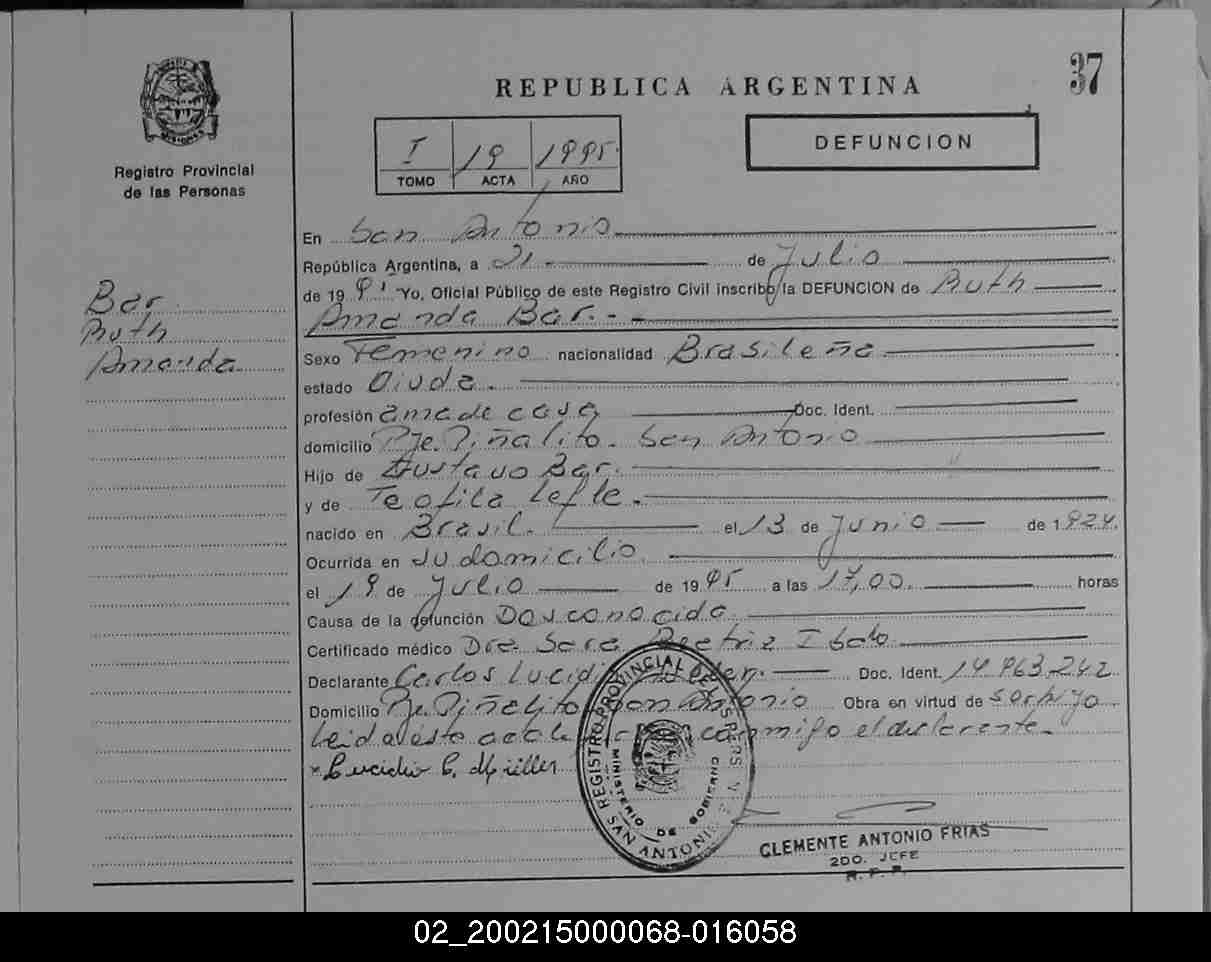 37
REPUBLICA ARGENTINA
DEFUNCION
I 19 1995.
TOMO ACTA AÑO
MISIONES
Registro Provincial
de las Personas
Bar
Ruth
Amanda
En San Antonio
República Argentina, a 21 de Julio
de 19 95 Yo, Oficial Público de este Registro Civil inscribo la DEFUNCION de Ruth
Amanda Bar.
Sexo Femenino nacionalidad Brasileña
estado Viuda.
profesión ama de casa Doc. Ident.
domicilio Pje. Piñalito. San Antonio
Hijo de Gustavo Bar.
y de Teofila
nacido en Brasil. el 13 de Junio de 1924.
Ocurrida en su domicilio.
el 19 de Julio de 1995 a las 17,00 horas
Causa de la defunción Desconocida
Certificado médico Dra. Sara Beatriz
Declarante Carlos Lucidio Doc. Ident. 14.963.242
Domicilio Pje. Piñalito San Antonio Obra en virtud de ser hijo
Leida esta acta conmigo el declarante.
Lucidio C. Müller
REGISTRO PROVINCIAL DE LAS PERS
MINISTERIO DE GOBIERNO
SAN ANTONIO
CLEMENTE ANTONIO FRIAS
2DO. JEFE
R. P. P.
02_200215000068-016058